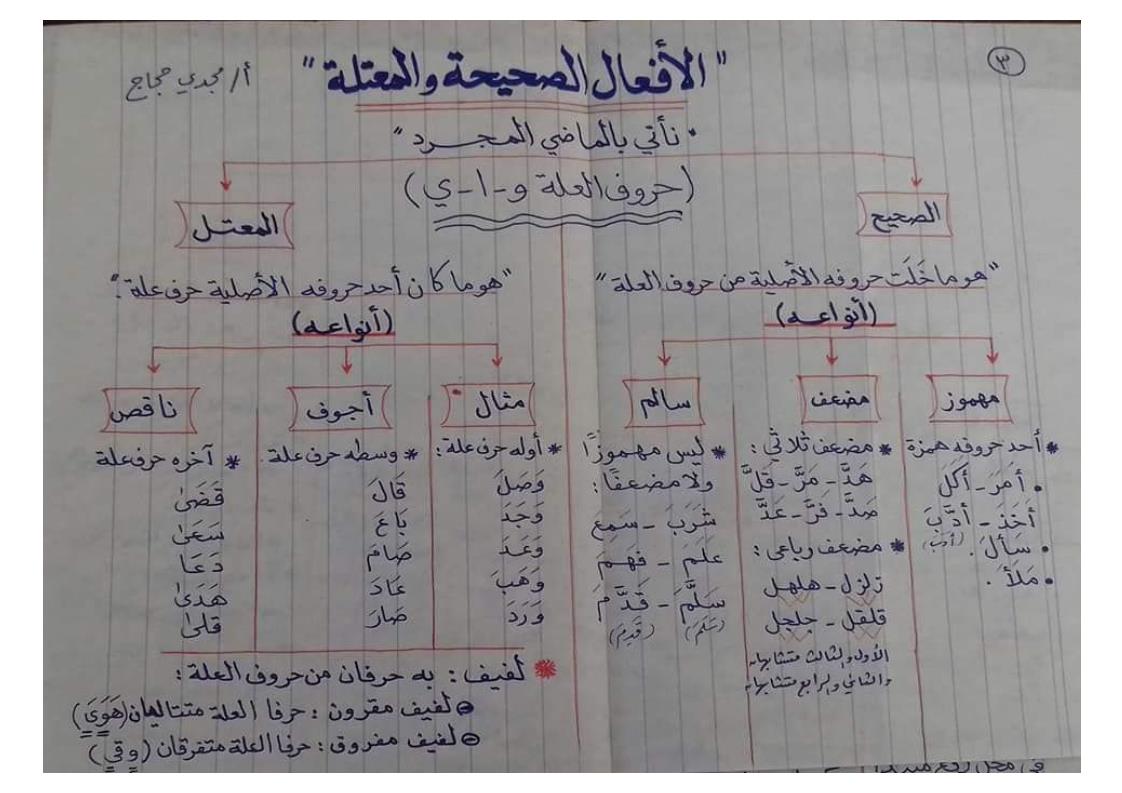 ٣
"الأفعال الصحيحة والمعتلة"
أ/ مجدي حجاج
"نأتي بالماضي المجرد"
(حروف العلة و-ا-ي)
الصحيح
"هو ما خَلَت حروفه الأصلية من حروف العلة"
(أنواعه)
مهموز
* أحد حروفه همزة
• أمَرَ - أكَلَ
أخَذَ - أدَّبَ
(أدب)
• سَألَ.
• مَلَأ.
مضعف
* مضعف ثلاثي:
هَدَّ - مَرَّ - قَلَّ
صَدَّ - فَرَّ - عَدَّ
* مضعف رباعى:
زلزل - هلهل
قلقل - جلجل
الأول والثالث متشابهان
والثاني والرابع متشابهان
سالم
* ليس مهموزًا
ولا مضعفًا:
شَرَبَ - سَمِعَ
عَلَمَ - فَهِمَ
سَلَّمَ - قَدَّمَ
(سَلِمَ) (قَدِمَ)
المعتل
"هو ما كان أحد حروفه الأصلية حرف علة:"
(أنواعه)
مثال
* أوله حرف علة:
وَصَلَ
وَجَدَ
وَعَدَ
وَهَبَ
وَرَدَ
أجوف
* وسطه حرف علة.
قَالَ
بَاعَ
صَامَ
عَادَ
صَارَ
ناقص
* آخره حرف علة
قَضَىٰ
سَعَىٰ
دَعَا
هَدَىٰ
قلىٰ
* لفيف: به حرفان من حروف العلة:
لفيف مقرون: حرفا العلة متتاليان (هَوَىَ)
لفيف مفروق: حرفا العلة متفرقان (وقي)
فى محل رفع